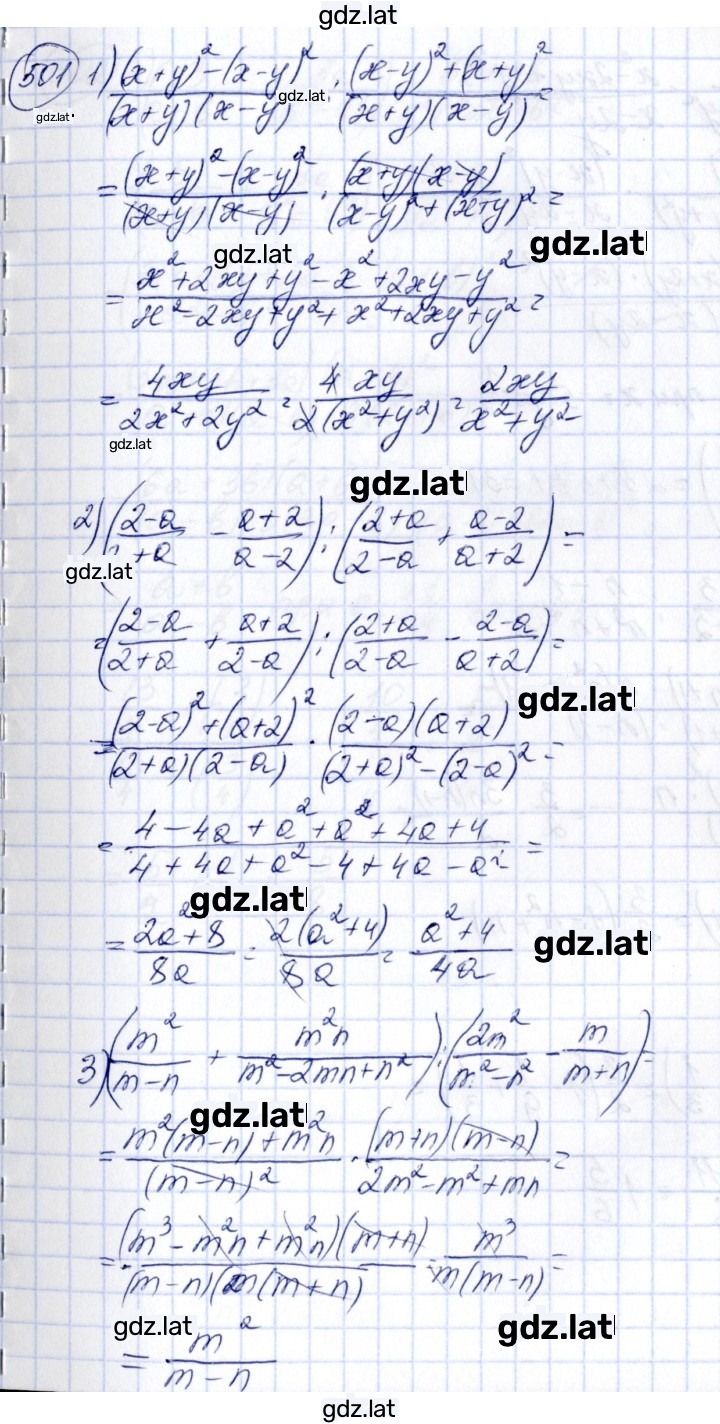 gdz.lat
501 1) ((x+y)²-(x-y)²)/((x+y)(x-y)) : ((x-y)²+(x+y)²)/((x+y)(x-y)) =
gdz.lat
gdz.lat
= ((x+y)²-(x-y)²)/((x+y)(x-y)) · ((x+y)(x-y))/((x-y)²+(x+y)²) =
gdz.lat gdz.lat
= (x²+2xy+y²-x²+2xy-y²)/(x²-2xy+y²+x²+2xy+y²) =
= 4xy/(2x²+2y²) = 4xy/(2(x²+y²)) = 2xy/(x²+y²)
gdz.lat
gdz.lat
2) ((2-a)/(+a) - (a+2)/(a-2)) : ((2+a)/(2-a) + (a-2)/(a+2)) =
gdz.lat
= ((2-a)/(2+a) + (a+2)/(2-a)) : ((2+a)/(2-a) - (2-a)/(a+2)) =
gdz.lat
= ((2-a)²+(a+2)²)/((2+a)(2-a)) · ((2-a)(a+2))/((2+a)²-(2-a)²) =
= (4-4a+a²+a²+4a+4)/(4+4a+a²-4+4a-a²) =
gdz.lat
= (2a²+8)/8a = 2(a²+4)/8a = (a²+4)/4a
gdz.lat
3) (m²/(m-n) + m²n/(m²-2mn+n²)) : (2m²/(m²-n²) - m/(m+n)) =
gdz.lat
= (m²(m-n)+m²n)/(m-n)² · ((m+n)(m-n))/(2m²-m²+mn) =
= ((m³-m²n+m²n)(m+n))/((m-n)(m(m+n)) = m³/(m(m-n)) =
gdz.lat gdz.lat
= m²/(m-n)
gdz.lat